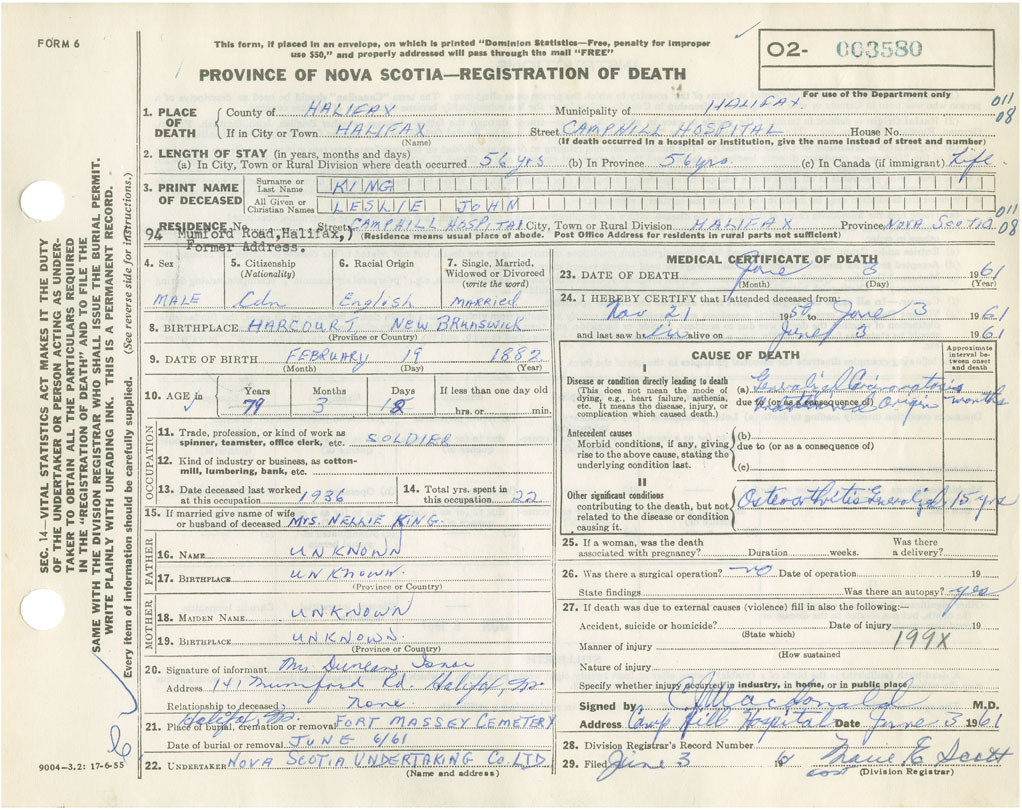 FORM 6
This form, if placed in an envelope, on which is printed "Dominion Statistics—Free, penalty for improper
use $50," and properly addressed will pass through the mail "FREE"
O2- 003580
For use of the Department only
PROVINCE OF NOVA SCOTIA—REGISTRATION OF DEATH
SEC. 14—VITAL STATISTICS ACT MAKES IT THE DUTY
OF THE UNDERTAKER OR PERSON ACTING AS UNDER-
TAKER TO OBTAIN ALL THE PARTICULARS REQUIRED
IN THE "REGISTRATION OF DEATH" AND TO FILE THE
SAME WITH THE DIVISION REGISTRAR WHO SHALL ISSUE THE BURIAL PERMIT.
WRITE PLAINLY WITH UNFADING INK. THIS IS A PERMANENT RECORD.
Every item of information should be carefully supplied. (See reverse side for instructions.)
1. PLACE OF DEATH County of HALIFAX Municipality of HALIFAX 011 08
If in City or Town HALIFAX Street CAMPHILL HOSPITAL House No.
(Name) (If death occurred in a hospital or institution, give the name instead of street and number)
2. LENGTH OF STAY (in years, months and days)
(a) In City, Town or Rural Division where death occurred 56 yrs (b) In Province 56 yrs. (c) In Canada (if immigrant) Life
3. PRINT NAME OF DECEASED Surname or Last Name KING
All Given or Christian Names LESLIE JOHN
RESIDENCE No. Street CAMPHILL HOSPITAL City, Town or Rural Division HALIFAX Province NOVA SCOTIA 011 08
94 Mumford Road, Halifax,) (Residence means usual place of abode. Post Office Address for residents in rural parts not sufficient)
Former Address.
4. Sex 5. Citizenship (Nationality) 6. Racial Origin 7. Single, Married, Widowed or Divorced (write the word)
MALE Cdn English MARRIED
8. BIRTHPLACE HARCOURT, NEW BRUNSWICK
(Province or Country)
9. DATE OF BIRTH FEBRUARY 19 1882
(Month) (Day) (Year)
10. AGE in Years Months Days If less than one day old
79 3 18 hrs. or min.
OCCUPATION
11. Trade, profession, or kind of work as
spinner, teamster, office clerk, etc. SOLDIER
12. Kind of industry or business, as cotton-
mill, lumbering, bank, etc.
13. Date deceased last worked at this occupation 1936 14. Total yrs. spent in this occupation 22
15. If married give name of wife
or husband of deceased MRS. NELLIE KING.
FATHER
16. NAME UNKNOWN
17. BIRTHPLACE UNKNOWN.
(Province or Country)
MOTHER
18. MAIDEN NAME UNKNOWN
19. BIRTHPLACE UNKNOWN.
(Province or Country)
20. Signature of informant Mr. Duncan
Address 141 Mumford Rd. Halifax, N.S.
Relationship to deceased None.
Halifax, N.S.
21. Place of burial, cremation or removal FORT MASSEY CEMETERY
Date of burial or removal JUNE 6/61
22. UNDERTAKER NOVA SCOTIA UNDERTAKING CO. LTD.
(Name and address)
9004-3.2: 17-6-55
MEDICAL CERTIFICATE OF DEATH
23. DATE OF DEATH June 3 1961
(Month) (Day) (Year)
24. I HEREBY CERTIFY that I attended deceased from:
Nov 21 1950 to June 3 1961
and last saw him alive on June 3 1961
CAUSE OF DEATH
Approximate interval between onset and death
I
Disease or condition directly leading to death
(This does not mean the mode of
dying, e.g., heart failure, asthenia,
etc. It means the disease, injury, or
complication which caused death.)
(a) Generalized Carcinomatosis
due to (or as a consequence of) Origin months
Antecedent causes
Morbid conditions, if any, giving
rise to the above cause, stating the
underlying condition last.
(b)
due to (or as a consequence of)
(c)
II
Other significant conditions
contributing to the death, but not
related to the disease or condition
causing it.
Osteoarthritis Generalized 15 yrs
25. If a woman, was the death Was there
associated with pregnancy? Duration weeks. a delivery?
26. Was there a surgical operation? no Date of operation 19
State findings Was there an autopsy? yes
27. If death was due to external causes (violence) fill in also the following:—
Accident, suicide or homicide? Date of injury 19
(State which)
Manner of injury 199X
(How sustained
Nature of injury
Specify whether injury occurred in industry, in home, or in public place
Signed by MacDonald M.D.
Address Camp Hill Hospital Date June 3 1961
28. Division Registrar's Record Number
29. Filed June 3 19 Marie E. Scott
(Division Registrar)